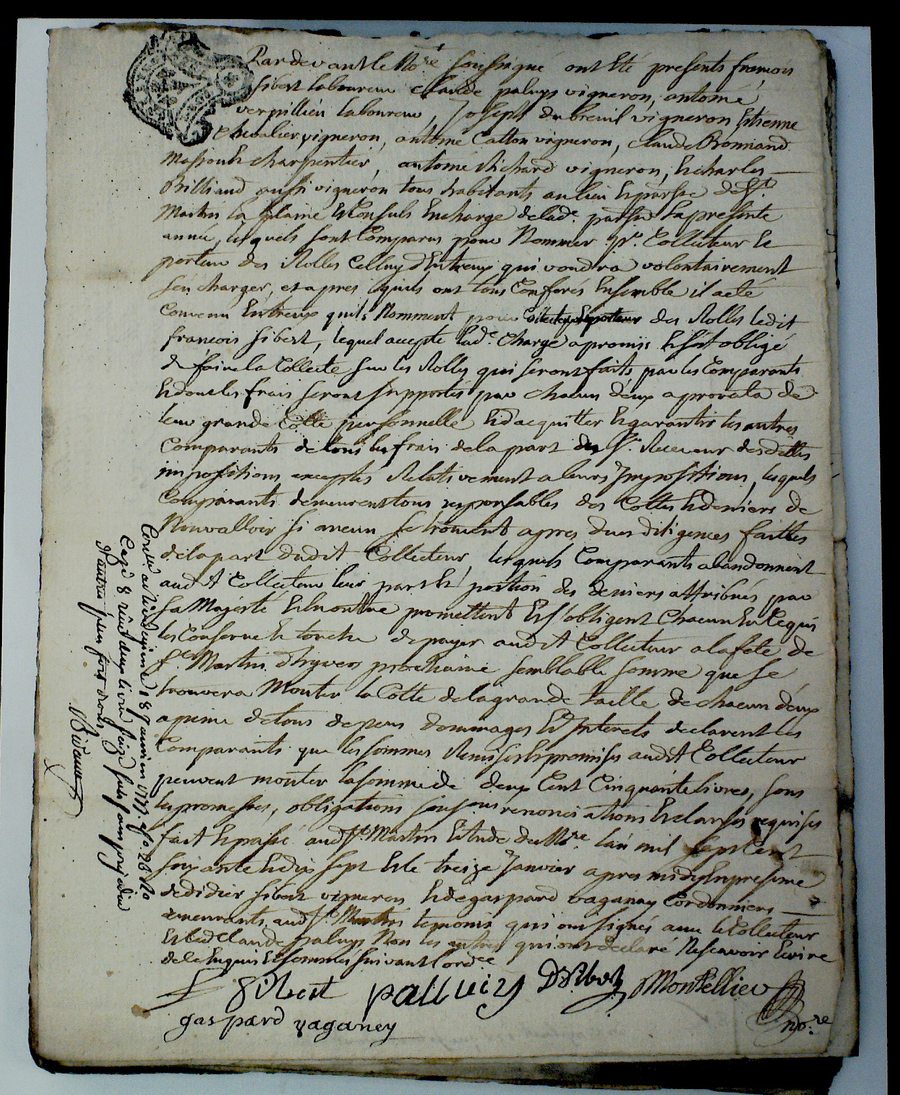 Pardevant le No.re soussigné ont été presents françois
Sibert laboureur Claude paluys vigneron, antoine
verpillieu laboureur, Joseph dubreuil vigneron Etienne
Chevalier vigneron, antoine Catton vigneron, Claude Bonnand
Masson Et charpentier, antoine Richard vigneron, Et charles
Billiand aussi vigneron tous habitants au lieu Et parsse de St
Martin la plaine Et Consuls En charge de lad.e parsse La presente
année, lesquels sont Comparus pour Nommer pr. Collecteur Et
porteur des Rolles Celluy d'Entreux qui voudra volontairement
s'en charger, et apres quils ont tous Conferés Ensemble il a eté
Convenu Entreux quils Nomment pour des Rolles ledit
francois Sibert, lequel accepte lad.e Charge a promis Et s'est obligé
de faire la Collecte sur les Rolles qui seront faits par les Comparants
Et dont les frais seront supportés par chacun d'eux a prorata de
leur grande Cotte personnelle Et d'acquitter Et garantir les autres
Comparants de tous les frais de la part du Sr. Receveur desdittes
impositions exceptés Relativement a leurs Impositions, lesquels
Comparants demeurent tous responsables des Cottes Et deniers de
Nonvalloir si aucun se trouvent apres dues diligences faittes
de la part dudit Collecteur lesquels Comparants abandonnent
audit Collecteur leur part Et portion des deniers attribués par
Sa Majesté Et En outre promettent Et s'obligent Chacun En Ce qui
les Conserne Et touche de payer audit Collecteur a la fete de
St. Martin d'hyver prochaine semblable somme que se
trouvera Monter la Cotte de la grande taille de chacun d'eux
a peine de tous depens dommages Et Interets declarent les
Comparants que les sommes Remises Et promises audit Collecteur
peuvent monter la somme de deux Cent Cinquante livres, sous
les promesses, obligations renonciations Et clauses requises
fait Et passé aud. St. Martin Etude du No.re l'an mil sept Cent
soixante Et dix sept Et le treize Janvier apres midy En presence
de didier Sibert vigneron Et de gaspard vaganay Cordonniers
demeurants aud. St. Martin temoins qui ont signés avec le Collecteur
Et led. Claude paluys Non les autres qui ont declaré Ne scavoir Ecrire
de ce Enquis Et sommés suivant l'ord.ce
f Sibert palluizy D Sibert Montellier
gaspard vaganey no.re
Controllé a Rivedegier le 18 Janvier 1777. f.o 26 R.o
Case 8 Reçu deux livres seize sols